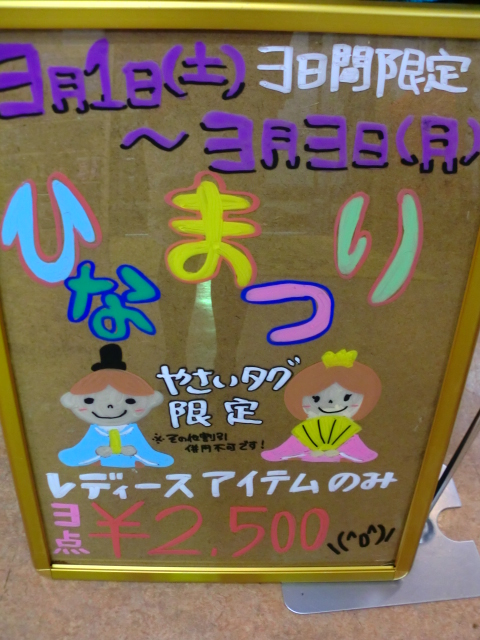 3月1日(土) 3日間限定
～3月3日(月)
ひなまつり
やさいタグ
限定
※その他割引
併用不可です!
レディースアイテムのみ
3点 ¥2,500 \(^o^)/